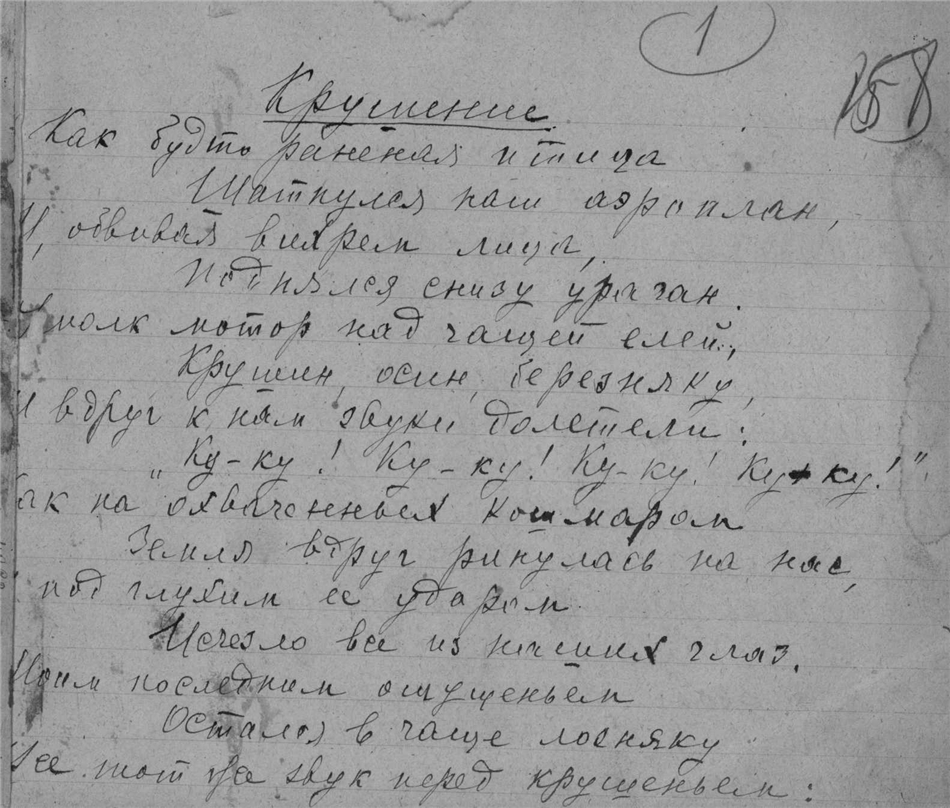 1
158
Крушение
Как будто раненая птица
Шатнулся наш аэроплан,
И, обвивая вихрем лица,
Поднялся снизу ураган.
Умолк мотор над чащей елей,
Крушин, осин, березняку,
И вдруг к нам звуки долетели:
„Ку-ку! Ку-ку! Ку-ку! Ку-ку!"
Как на охваченных кошмаром
Земля вдруг ринулась на нас,
под глухим ее ударом
Исчезло все из наших глаз.
Моим последним ощущеньем
Остался в чаще лозняку
Все тот же звук перед крушеньем: